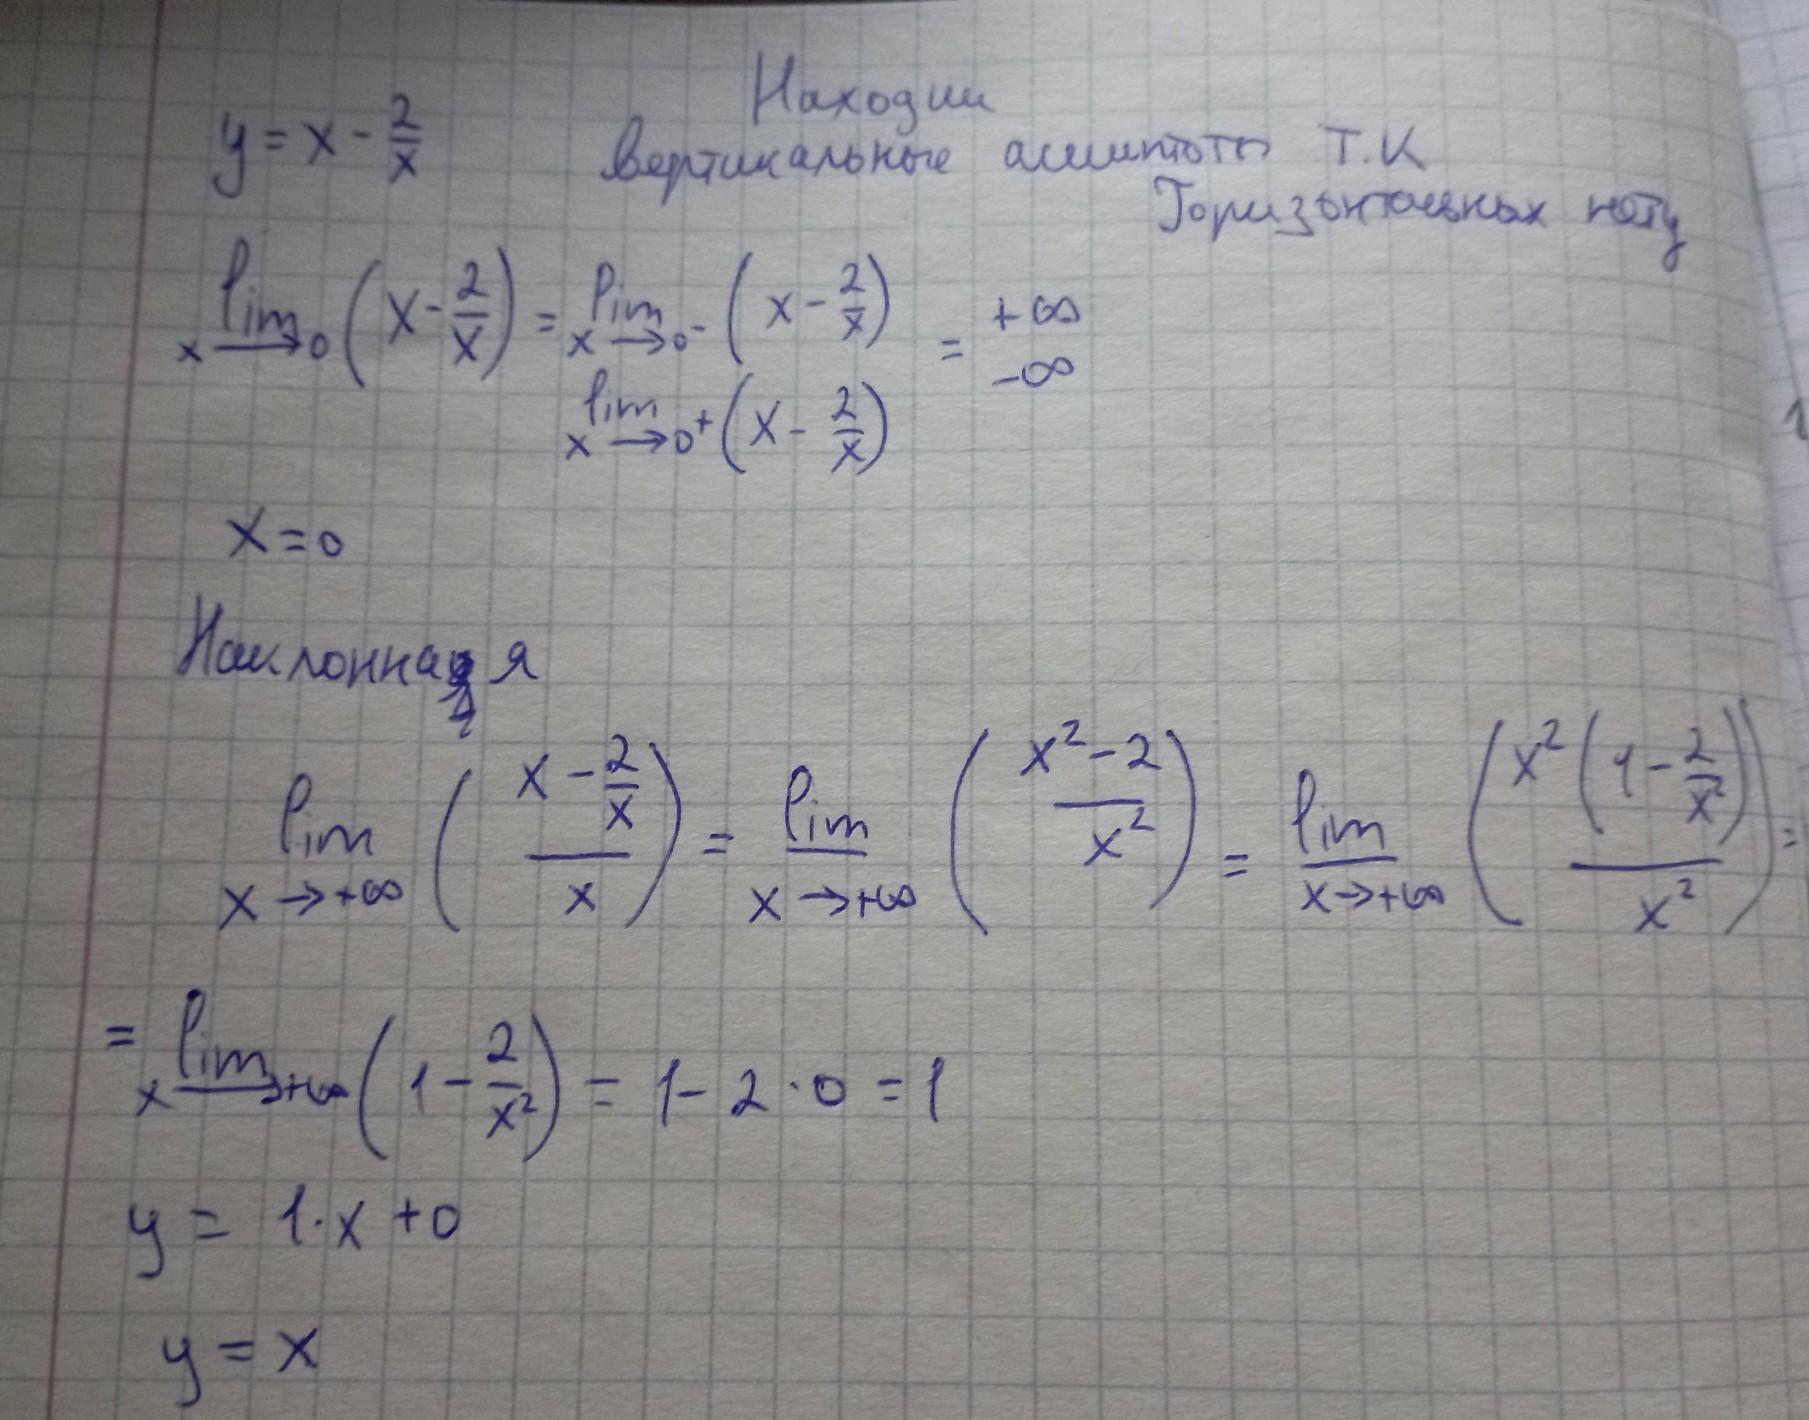 Находим
y = x - 2/x
вертикальные асимптоты Т.К
Горизонтальных нету
lim x→0 (x - 2/x) = lim x→0- (x - 2/x) = +∞
lim x→0+ (x - 2/x) -∞
x = 0
Наклонная
lim x→+∞ ((x - 2/x)/x) = lim x→+∞ ((x² - 2)/x²) = lim x→+∞ ((x²(1 - 2/x²))/x²) =
= lim x→+∞ (1 - 2/x²) = 1 - 2·0 = 1
y = 1·x + 0
y = x